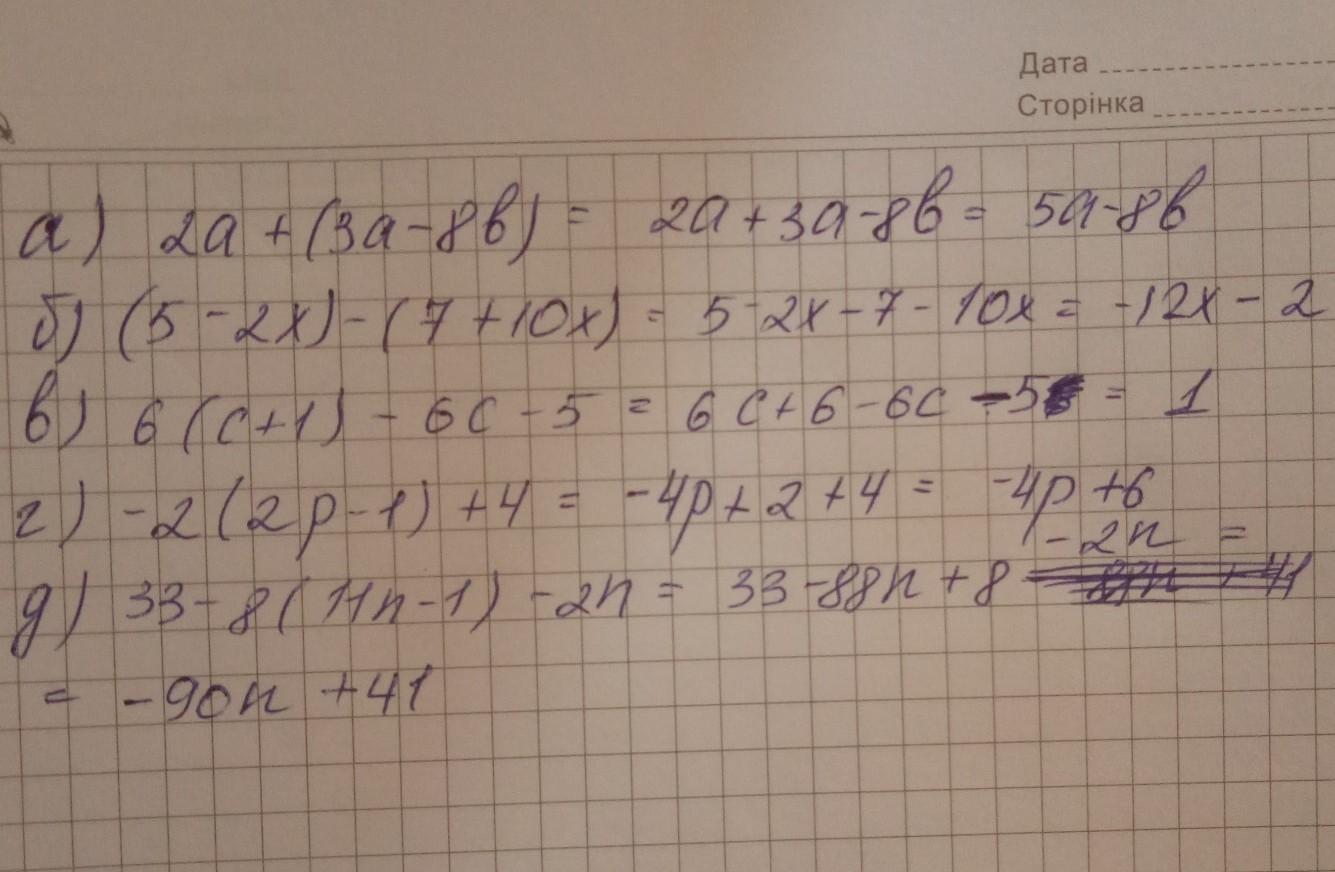 Дата
Сторінка
а) 2a + (3a - 8b) = 2a + 3a - 8b = 5a - 8b
б) (5 - 2x) - (7 + 10x) = 5 - 2x - 7 - 10x = -12x - 2
в) 6(c+1) - 6c - 5 = 6c + 6 - 6c - 5 = 1
г) -2(2p - 1) + 4 = -4p + 2 + 4 = -4p + 6
д) 33 - 8(11n - 1) - 2n = 33 - 88n + 8 - 2n =
= -90n + 41